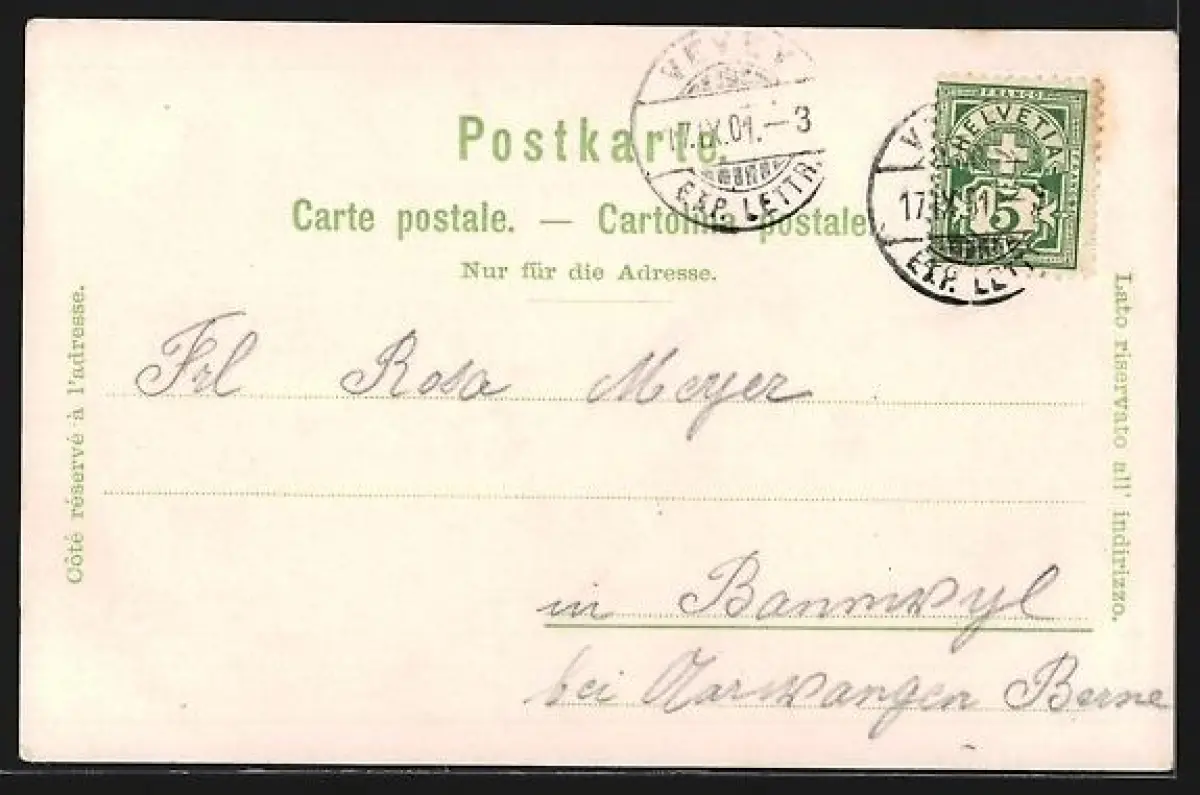 VEVEY
17.IX.01.-3
EXP. LETTR.
FRANCO
HELVETIA
5
17.IX.01
EXP. LETT
Postkarte.
Carte postale. — Cartolina postale.
Nur für die Adresse.
Côté réservé à l'adresse.
Lato riservato all' indirizzo.
Frl Rosa Meyer
in Bannwyl
bei Aarwangen Berne